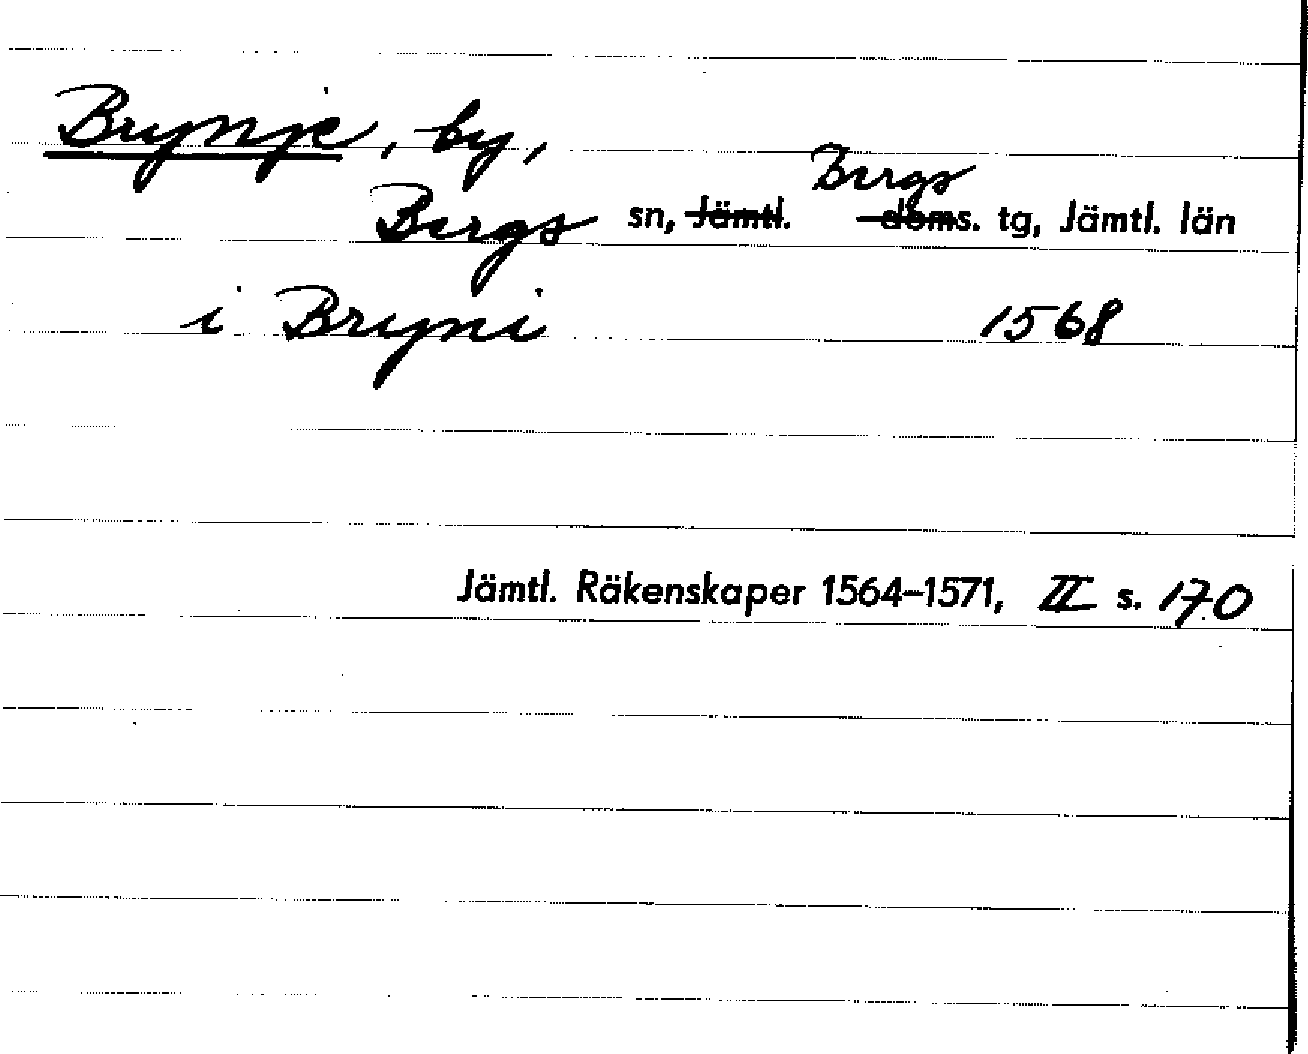 Brynje, by,
Bergs
Bergs sn, Jämtl. doms. tg, Jämtl. län
i Bryni 1568
Jämtl. Räkenskaper 1564–1571, II s. 170